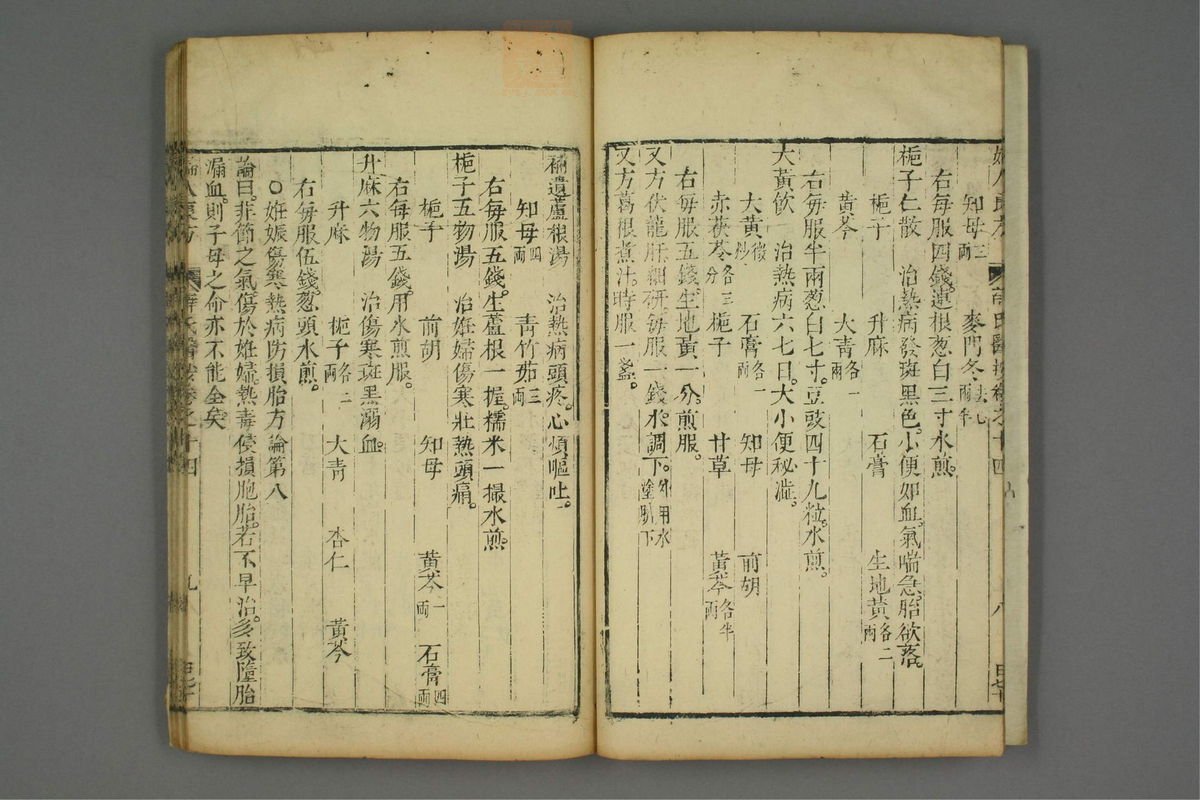 知母三兩　麥門冬去心兩半
右每服四錢。連根葱白三寸水煎。
梔子仁散　治熱病發斑黑色。小便如血。氣喘急。胎欲落。
梔子　升麻　石膏　生地黃各二兩
黃芩　大青各一兩
右每服半兩葱白七寸。豆豉四十九粒。水煎。
大黃飲　治熱病六七日。大小便秘澁。
大黃微炒　石膏各一兩　知母　前胡
赤茯苓各三分　梔子　甘草　黃芩各半兩
右每服五錢。生地黃一分。煎服。
又方伏龍肝細研。每服一錢水調下。外用水塗臍下
又方葛根煮汁。時服一盞。
補遺蘆根湯　治熱病頭疼。心煩嘔吐。
知母四兩　青竹茹三兩
右每服五錢。生蘆根一握。糯米一撮水煎。
梔子五物湯　治姙婦傷寒壯熱頭痛。
梔子　前胡　知母　黃芩一兩　石膏四兩
右每服五錢。用水煎服。
升麻六物湯　治傷寒斑黑溺血。
升麻　梔子各二兩　大青　杏仁　黃芩
右每服伍錢。葱頭水煎。
○姙娠傷寒熱病防損胎方論第八
論曰。非節之氣傷於姙婦。熱毒侵損胞胎。若不早治。多致墮胎
漏血。則子母之命亦不能全矣